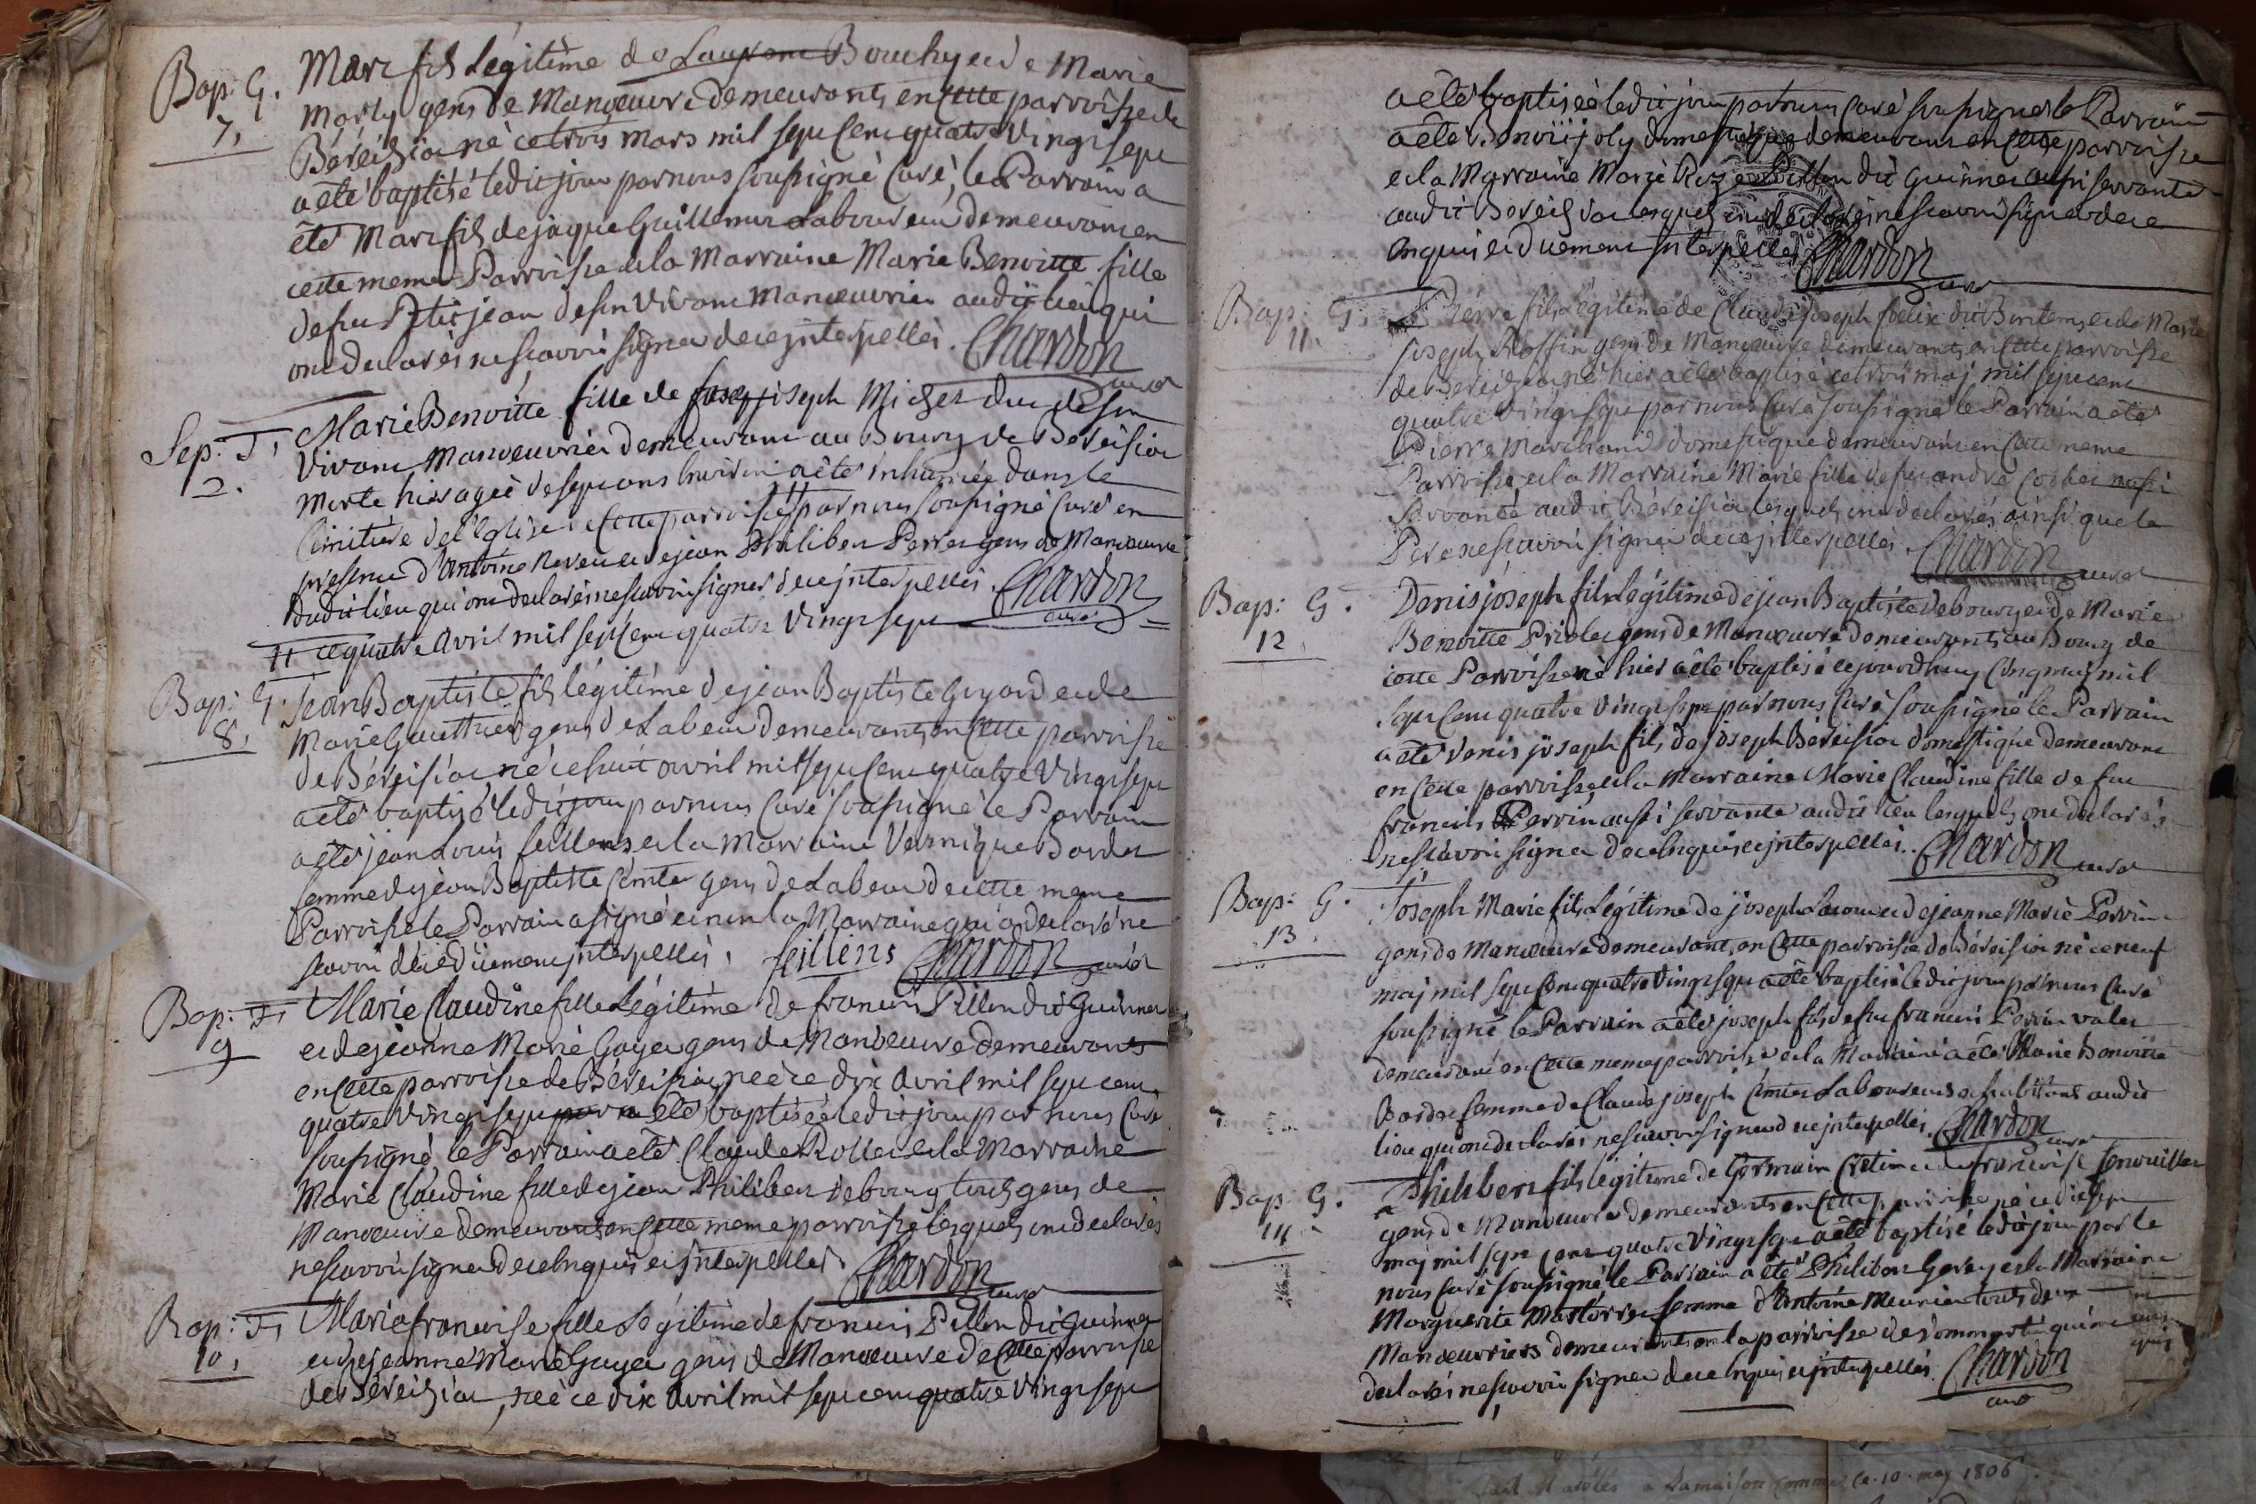 Bap: G.
7,
Marc fils Légitime de Laurent Bouchy et de Marie
Marly gens de Manoeuvre demeurants en cette parroisse de
Béreiziat né ce trois mars mil sept cent quatre vingt sept
a été baptisé ledit jour par nous soussigné Curé, le Parrain a
été Marc fils de jaque Guillemin Laboureur demeurant en
cette meme Parroisse et la Marraine Marie Benoitte fille
de feu Petitjean de son vivant Manoeuvrier audit lieu qui
ont declarés ne scavoir signer de ce interpellés. Chardon
curé
Sep: F,
2.
Marie Benoitte fille de joseph Michel duc de son
vivant Manoeuvrier demeurant au Bourg de Béreisiat
morte hier agée de sept ans environ a été inhumée dans le
Cimitière de l'Eglise de cette parroisse par nous soussigné Curé en
presence d'Antoine Neveu et de jean Philibert Perret gens de Manoeuvre
dudit lieu qui ont declarés ne scavoir signer de ce interpellés. Chardon
ce quatre avril mil sept cent quatre vingt sept curé
Bap: G.
8,
Jean Baptiste fils légitime de jean Baptiste Guyard et de
Marie Gauthier gens de Labeur demeurants en cette parroisse
de Béreisiat né ce huit avril mil sept cent quatre vingt sept
a été baptisé ledit jour par nous Curé soussigné le Parrain
a été jean Louis feillens et la Marraine Veronique Bordet
femme de jean Baptiste Comte gens de Labeur de cette meme
Parroisse le Parrain a signé et non la Marraine qui a declaré ne
scavoir de ce düement interpellés. feillens Chardon curé
Bap: F,
9
Marie Claudine fille Légitime de francois Pillon dit Guinnet
et de jeanne Marie Goyet gens de Manoeuvre demeurants
en cette parroisse de Béreiziat née ce dix avril mil sept cent
quatre vingt sept a été baptisée ledit jour par nous Curé
soussigné le Parrain a été Claude Rollet et la Marraine
Marie Claudine fille de jean Philibert Debourg tous gens de
Manoeuvre demeurants en cette meme parroisse lesquels ont declarés
ne scavoir signer de ce enquis et interpellés. Chardon
curé
Bap: F,
10,
Marie francoise fille Légitime de francois Pillon dit Guinnet
et de jeanne Marie Goyet gens de Manoeuvre de cette parroisse
de Béreiziat, née ce dix avril mil sept cent quatre vingt sept
a été baptisée ledit jour par nous Curé soussigné le Parrain
a été Benoit joly domestique demeurant en cette parroisse
et la Marraine Marie Pillon dit Guinnet aussi servante
audit Béreiziat lesquels ont declarés ne scavoir signer de ce
enquis et düement interpellés Chardon
curé
Bap: G.
11.
Pierre fils légitime de Claude joseph foelix dit Bontems et de Marie
joseph Roffin gens de Manoeuvre demeurants en cette parroisse
de Béreiziat né hier a été baptisé ce trois maj mil sept cent
quatre vingt sept par nous Curé soussigné le Parrain a été
Pierre Marchand domestique demeurant en cette meme
Parroisse et la Marraine Marie fille de feu andré Corbet aussi
servante audit Béreisiat lesquels ont declarés ainsi que le
Pere ne scavoir signer de ce interpellés. Chardon
curé
Bap: G.
12
Denis joseph fils légitime de jean Baptiste Debourg et de Marie
Benoitte Priolet gens de Manoeuvre demeurants au Bourg de
cette Parroisse né hier a été baptisé ce jourd'huy cinq maj mil
sept cent quatre vingt sept par nous Curé soussigné le Parrain
a été Denis joseph fils de joseph Béreiziat domestique demeurant
en cette parroisse et la Marraine Marie Claudine fille de feu
francois Perrin aussi servante audit lieu lesquels ont declarés
ne scavoir signer de ce enquis et interpellés. Chardon curé
Bap: G.
13.
Joseph Marie fils Légitime de joseph Lacom et de jeanne Marie Perrin
gens de Manoeuvre demeurants en cette parroisse de Béreisiat né ce neuf
maj mil sept cent quatre vingt sept a été baptisé ledit jour par nous Curé
soussigné le Parrain a été joseph fils de feu francois Perrin valet
demeurant en cette meme parroisse et la Marraine a été Marie Benoitte
Bordet femme de Claude joseph Comte Laboureurs habitants audit
lieu qui ont declarés ne scavoir signer de ce interpellés. Chardon
curé
Bap: G.
14
Philibert fils légitime de Germain Cretin et de francoise Genouiller
gens de Manoeuvre demeurants en cette parroisse né ce dix sept
maj mil sept cent quatre vingt sept a été baptisé ledit jour par le
nous curé soussigné le Parrain a été Philibert Goray et la Marraine
Marguerite Martorret femme d'Antoine Meunier tous deux
Manoeuvriers demeurants en la parroisse de Dommartin qui ont
declarés ne scavoir signer de ce enquis et interpellés. Chardon
curé
a Lamaison Commune Ce. 10. may 1806